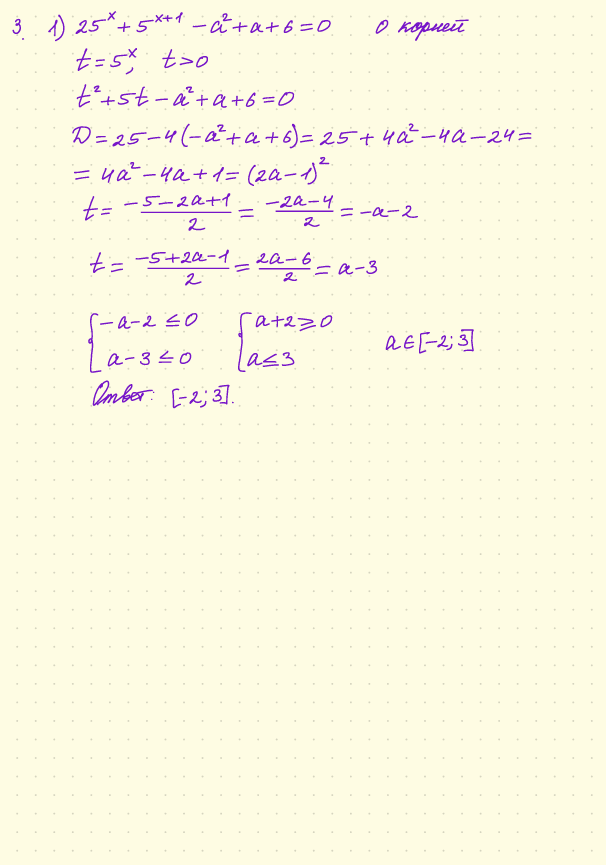 3. 1) 25^x + 5^(x+1) - a² + a + 6 = 0 0 корней
t = 5^x, t > 0
t² + 5t - a² + a + 6 = 0
D = 25 - 4(-a² + a + 6) = 25 + 4a² - 4a - 24 =
= 4a² - 4a + 1 = (2a - 1)²
t = (-5 - 2a + 1)/2 = (-2a - 4)/2 = -a - 2
t = (-5 + 2a - 1)/2 = (2a - 6)/2 = a - 3
{ -a - 2 ≤ 0 { a + 2 ⩾ 0
{ a - 3 ≤ 0 { a ≤ 3 a ∈ [-2; 3]
Ответ: [-2; 3].